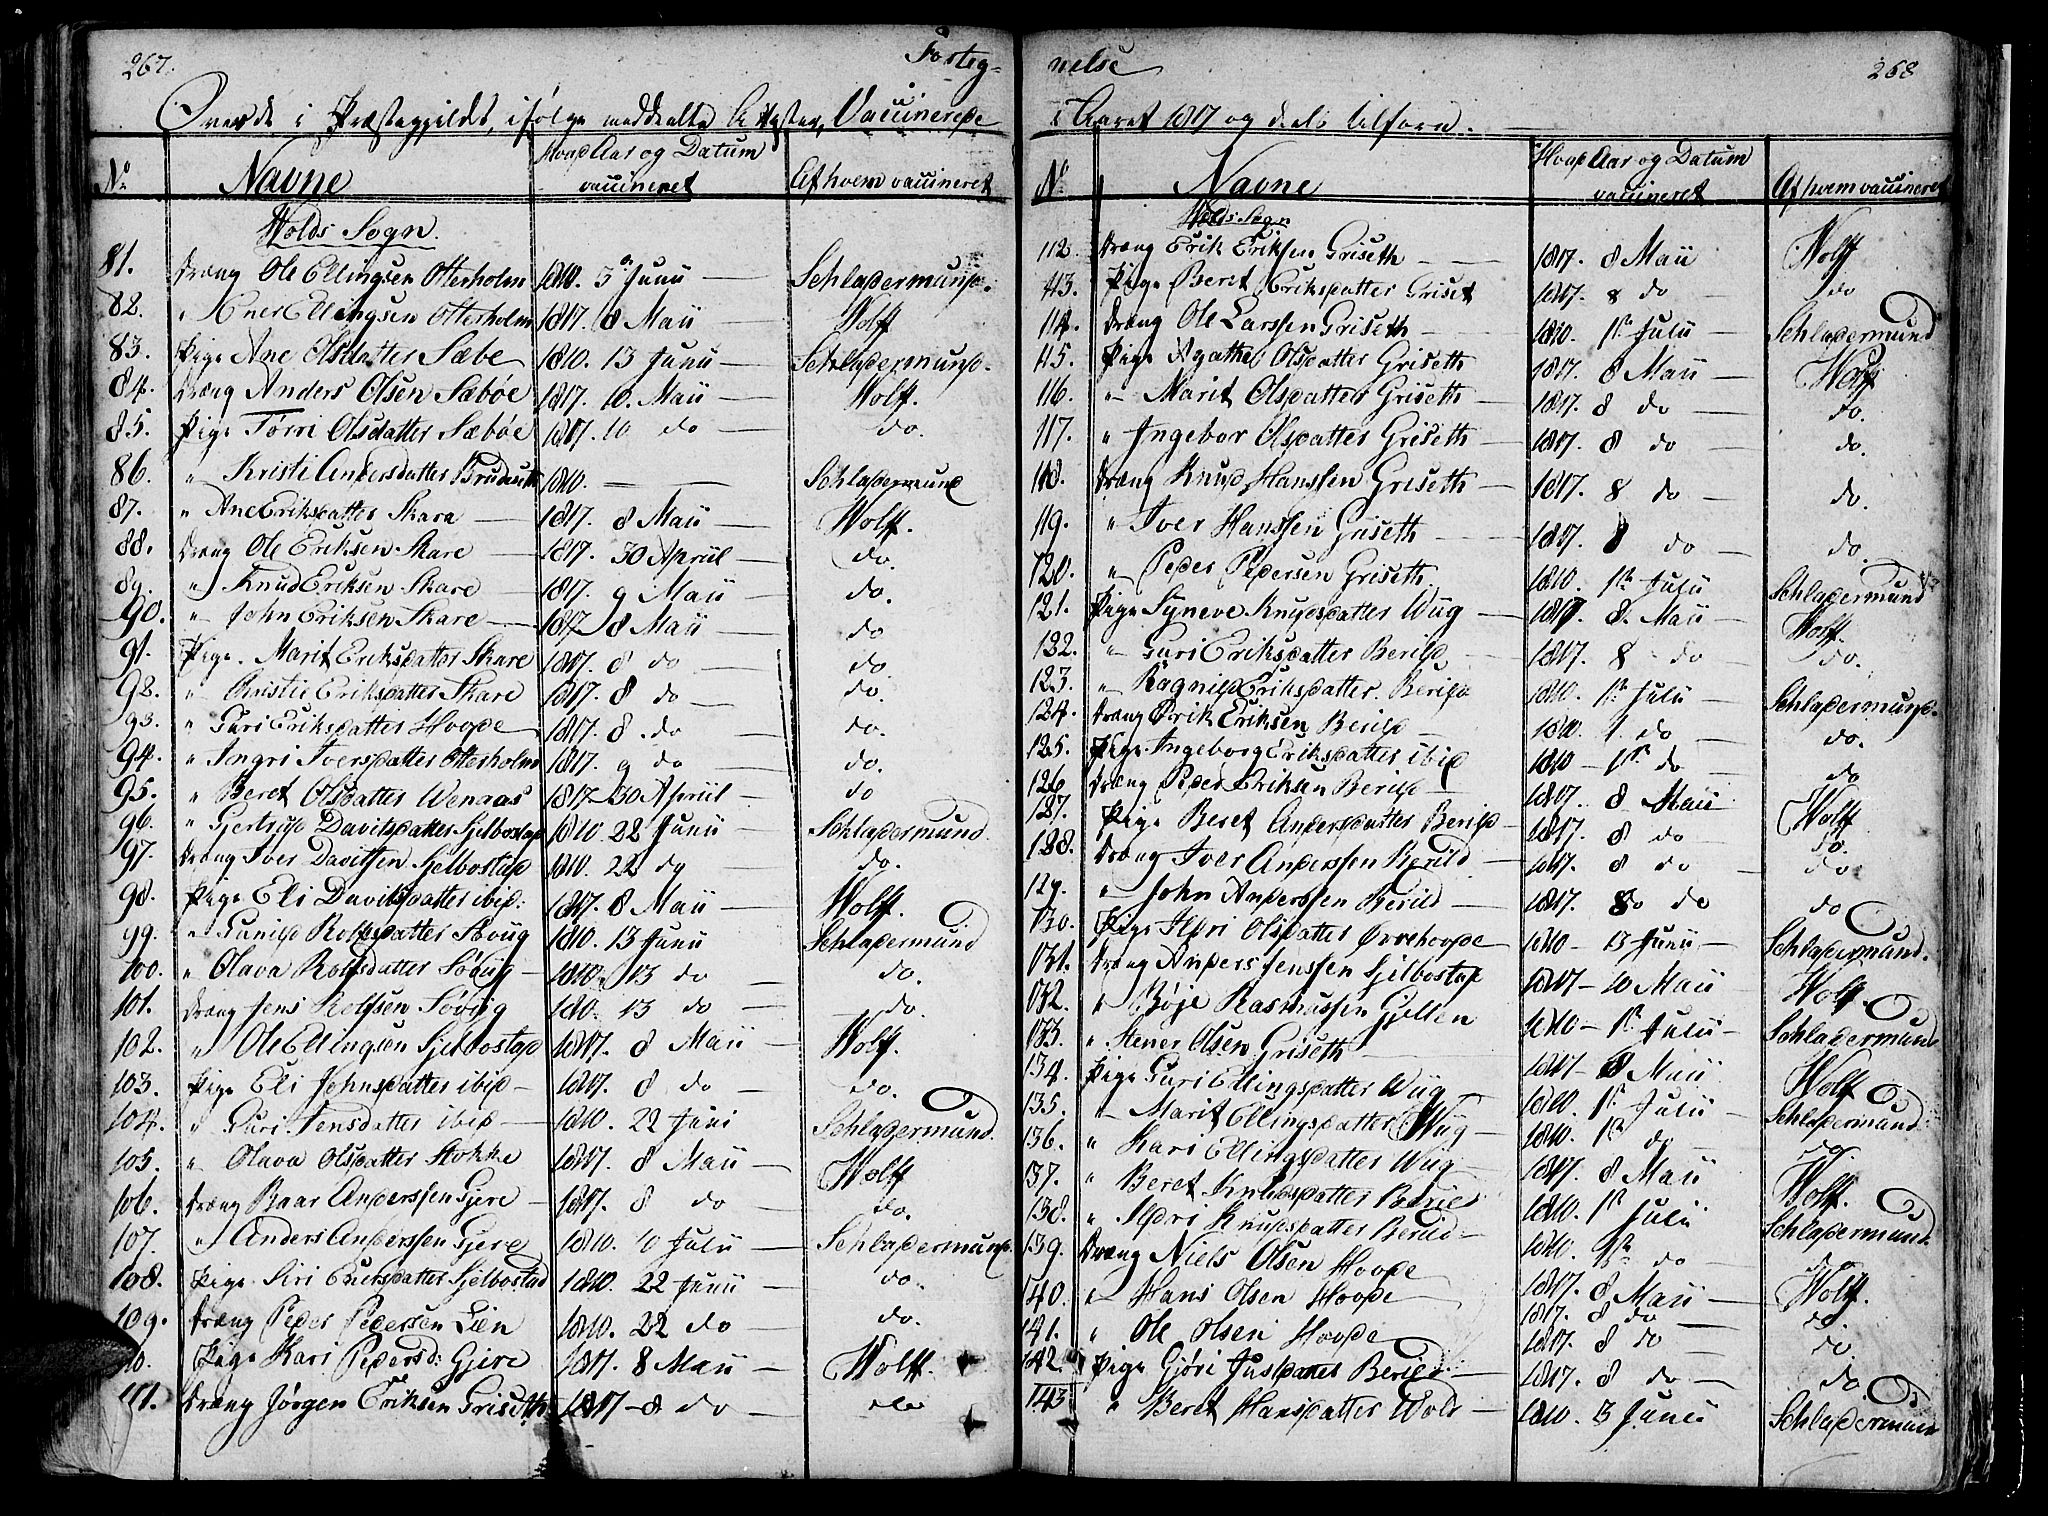 267.
Forteg-
Over de i Præstegjeldet, ifølge meddelte Attester, Vaccinerede
No Navne Hvad Aar og Datum vaccineret Af hvem vaccineret
Wolds Sogn.
81. Dræng Ole Ellingsen Otterholm 1810. 3 Junii — Schladermund.
82. " Ener Ellingsen Otterholm 1817. 8 Maii — Wolff
83. Pige Ane Olsdatter Sæbe 1810. 13 Junii — Schladermund.
84. Dræng Anders Olsen Sæbøe 1817. 10. Maii — Wolff.
85. Pige Tørri Olsdatter Sæbøe 1817. 10 do — do.
86. " Kristi Andersdatter 1810. — — Schladermund
87. " Ane Eriksdatter Skara — 1817. 8 Maii — Wolff.
88. Dræng Ole Eriksen Skare — 1817. 30 Apriil — do.
89. " Knud Eriksen Skare 1817. 9 Maii — do.
90. " John Eriksen Skare — 1817. 8 Maii — do
91. Pige. Marit Eriksdatter Skare 1817. 8 do — do.
92. " Kristie Eriksdatter Skare 1817. 8 do — do.
93. " Guri Eriksdatter Hovde 1817. 8 do — do.
94. " Ingri Iversdatter Otterholm 1817. 9 do — do.
95. " Beret Olsdatter Wenaas 1817. 30 Apriil — do
96. " Gjertrud Davidsdatter Sjelbostad 1810. 22 Junii — Schladermund.
97. Dræng Iver Davitsen Sjelbostad 1810. 22 do — do.
98. Pige Eli Davitsdatter ibid: 1817. 8 Maii — Wolff.
99. " Gunild Rolfsdatter Søvig 1810. 13 Junii Schladermund
100. " Olava Rolfsdatter Søvig — 1810. 13 do — do.
101. Dræng Jens Rolfsen Søvig 180. 13 do — do.
102. " Ole Ellingsen Sjelbostad 1817. 8 Maii — Wolff.
103. Pige Eli Johnsdatter ibid — 1817. 8 do — do.
104. " Guri Jensdatter ibid — 1810. 22 Juni Schladermund.
105. " Olava Olsdatter Stokke 1817. 8 Maii — Wolff
106. Dræng Baar Anderssen Gjere — 1817. 8 do — do.
107. " Anders Anderssen Gjere 1810. 10 Julii — Schladermund.
108. Pige Siri Eriksdatter Sjelbostad 1810. 22 Junii — do.
109. Dræng Peder Pedersen Lien 1810. 22 do — do.
110. Pige Kari Pedersd: Gjere 1817. 8 Maii — Wolff.
111. Dræng Jørgen Eriksen Griseth 1817 — 8 do — do
nelse
268
i Aaret 1817 og deels tilforn. —
No Navne Hvad Aar og Datum vaccineret Af hvem vaccineret
Wolds Sogn
112. Dræng Erik Eriksen Griseth — 1817. 8 Maii Wolff
113. Pige Beret Eriksdatter Griset 1817. 8 do — do
114. Dræng Ole Larssen Griseth — 1810. 1ste Julii — Schladermund
115. Pige Agathe Olsdatter Griseth 1817. 8 Maii — Wolff
116. " Marit Olsdatter Griseth — 1817. 8 do — do.
117. " Ingebor Olsdatter Griseth — 1817. 8 do — do.
118. Dræng Knud Hanssen Griseth — 1817. 8 do — do.
119. " Iver Hanssen Griseth — 1817. 8 do — do.
120. " Peder Pedersen Griseth. 1810. 1ste Julii Schladermund
121. Pige Syneve Knudsdatter Wiig — 1817. 8. Maii — Wolff.
122. " Guri Eriksdatter Berild — 1817. 8 do — do.
123. " Ragnild Eriksdatter. Berild 1810. 1ste Julii — Schladermund.
124. Dræng Erik Eriksen Berild — 1810. 1. do — do.
125. Pige Ingeborg Eriksdatter ibid 1810 — 1ste do — do
126 Dræng Peder Eriksen Berild — 1817. 8 Maii Wolff
127. Pige Beret Andersdatter Berild — 1817. 8 do — do.
128. Dræng Iver Anderssen Berild — 1817. 8 do — do
129. " John Anderssen Berild — 1817. 8 do do do
130. Pige Ildri Olsdatter Øvrehovde 1810 — 13 Junii — Schladermund.
131. Dræng Anders Jenssen Sjelbostad 1817 — 10 Maii — Wolff.
132. " Bøje Rasmussen 1810 — 1ste Julii — Schladermund
133. " Stener Olsen Griseth — 1817 — 8 Maii Wolff
134. Pige Guri Ellingsdatter Wiig — 1810. 1ste Julii — Schladermund.
135. " Marit Ellingsdatter Wiig — 1810. 1ste do — do
136. " Kari Ellingsdatter Wiig — 1817. 8 Maii — Wolff.
137. " Beret Knudsdatter Berild 1810. 1ste Julii Schladermund.
138. " Ildri Knudsdatter Berild — 1810. 1ste do — do
139. Dræng Niels Olsen Hovde 1817. 8 Maii — Wolff.
140. " Hans Olsen Hovde — 1817. 8 do — do.
141. " Ole Olsen Hovde 1817. 8 do — do.
142. Pige Gjøri Jusdatter Berild 1817. 8 do — do
143 " Beret Hansdatter Wold — 1810. 13 Junii Schladermund